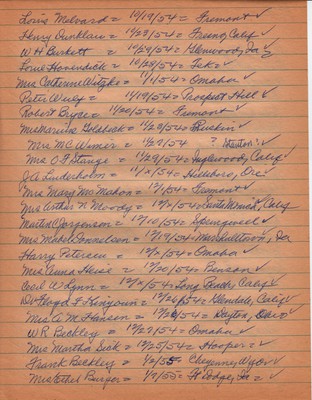 Louis Melvard = 10/19/54 = Fremont ✓
Henry = 11/29/54 = Fresno, Calif ✓
W H Burkett = 10/29/54 = Glenwood, Ia ✓
Louie Hovendick = 10/28/54 = Tek ✓
Mrs Catherine Witzke = 11/1/54 = Omaha ✓
Peter Wulf = 11/19/54 = Prospect Hill ✓
Robert Bryce = 11/20/54 = Fremont ✓
Mrs Marie = 11/29/54 = Ruskin ✓
Mrs Mc Wimer = 1/29/54 ? Stanton ✓
Mrs O F Stange = 11/29/54 = Inglewood, Calif ✓
J.A. Linderholm = 11/x/54 = Hillsboro, Ore ✓
Mrs Mary Mc Mahon = 12/1/54 = Fremont ✓
Mrs Arthur N Moody = 12/x/54 = Santa Monica, Calif
Martin Jorgenson = 12/10/54 = Springwell ✓
Mrs Mabel = 12/19/54 = Marshalltown, Ia
Harry Petersen = 12/2/54 = Omaha ✓
Mrs Anna Heise = 12/20/54 = Benson ✓
Cecil W Lynn = 12/x/54 = Long Beach, Calif ✓
Dr Floyd F Kenyoun = 12/26/54 = Glendale, Calif ✓
Mrs C. M. Hansen = 12/26/54 = Dayton, Ohio ✓
W R Beckley = 12/27/54 = Omaha ✓
Mrs Martha Sick = 12/25/54 = Hooper = ✓
Frank Beckley = 1/2/55 Cheyenne, Wyo ✓
Mrs Ethel Burger = 1/9/55 = Ft Dodge, Ia = ✓